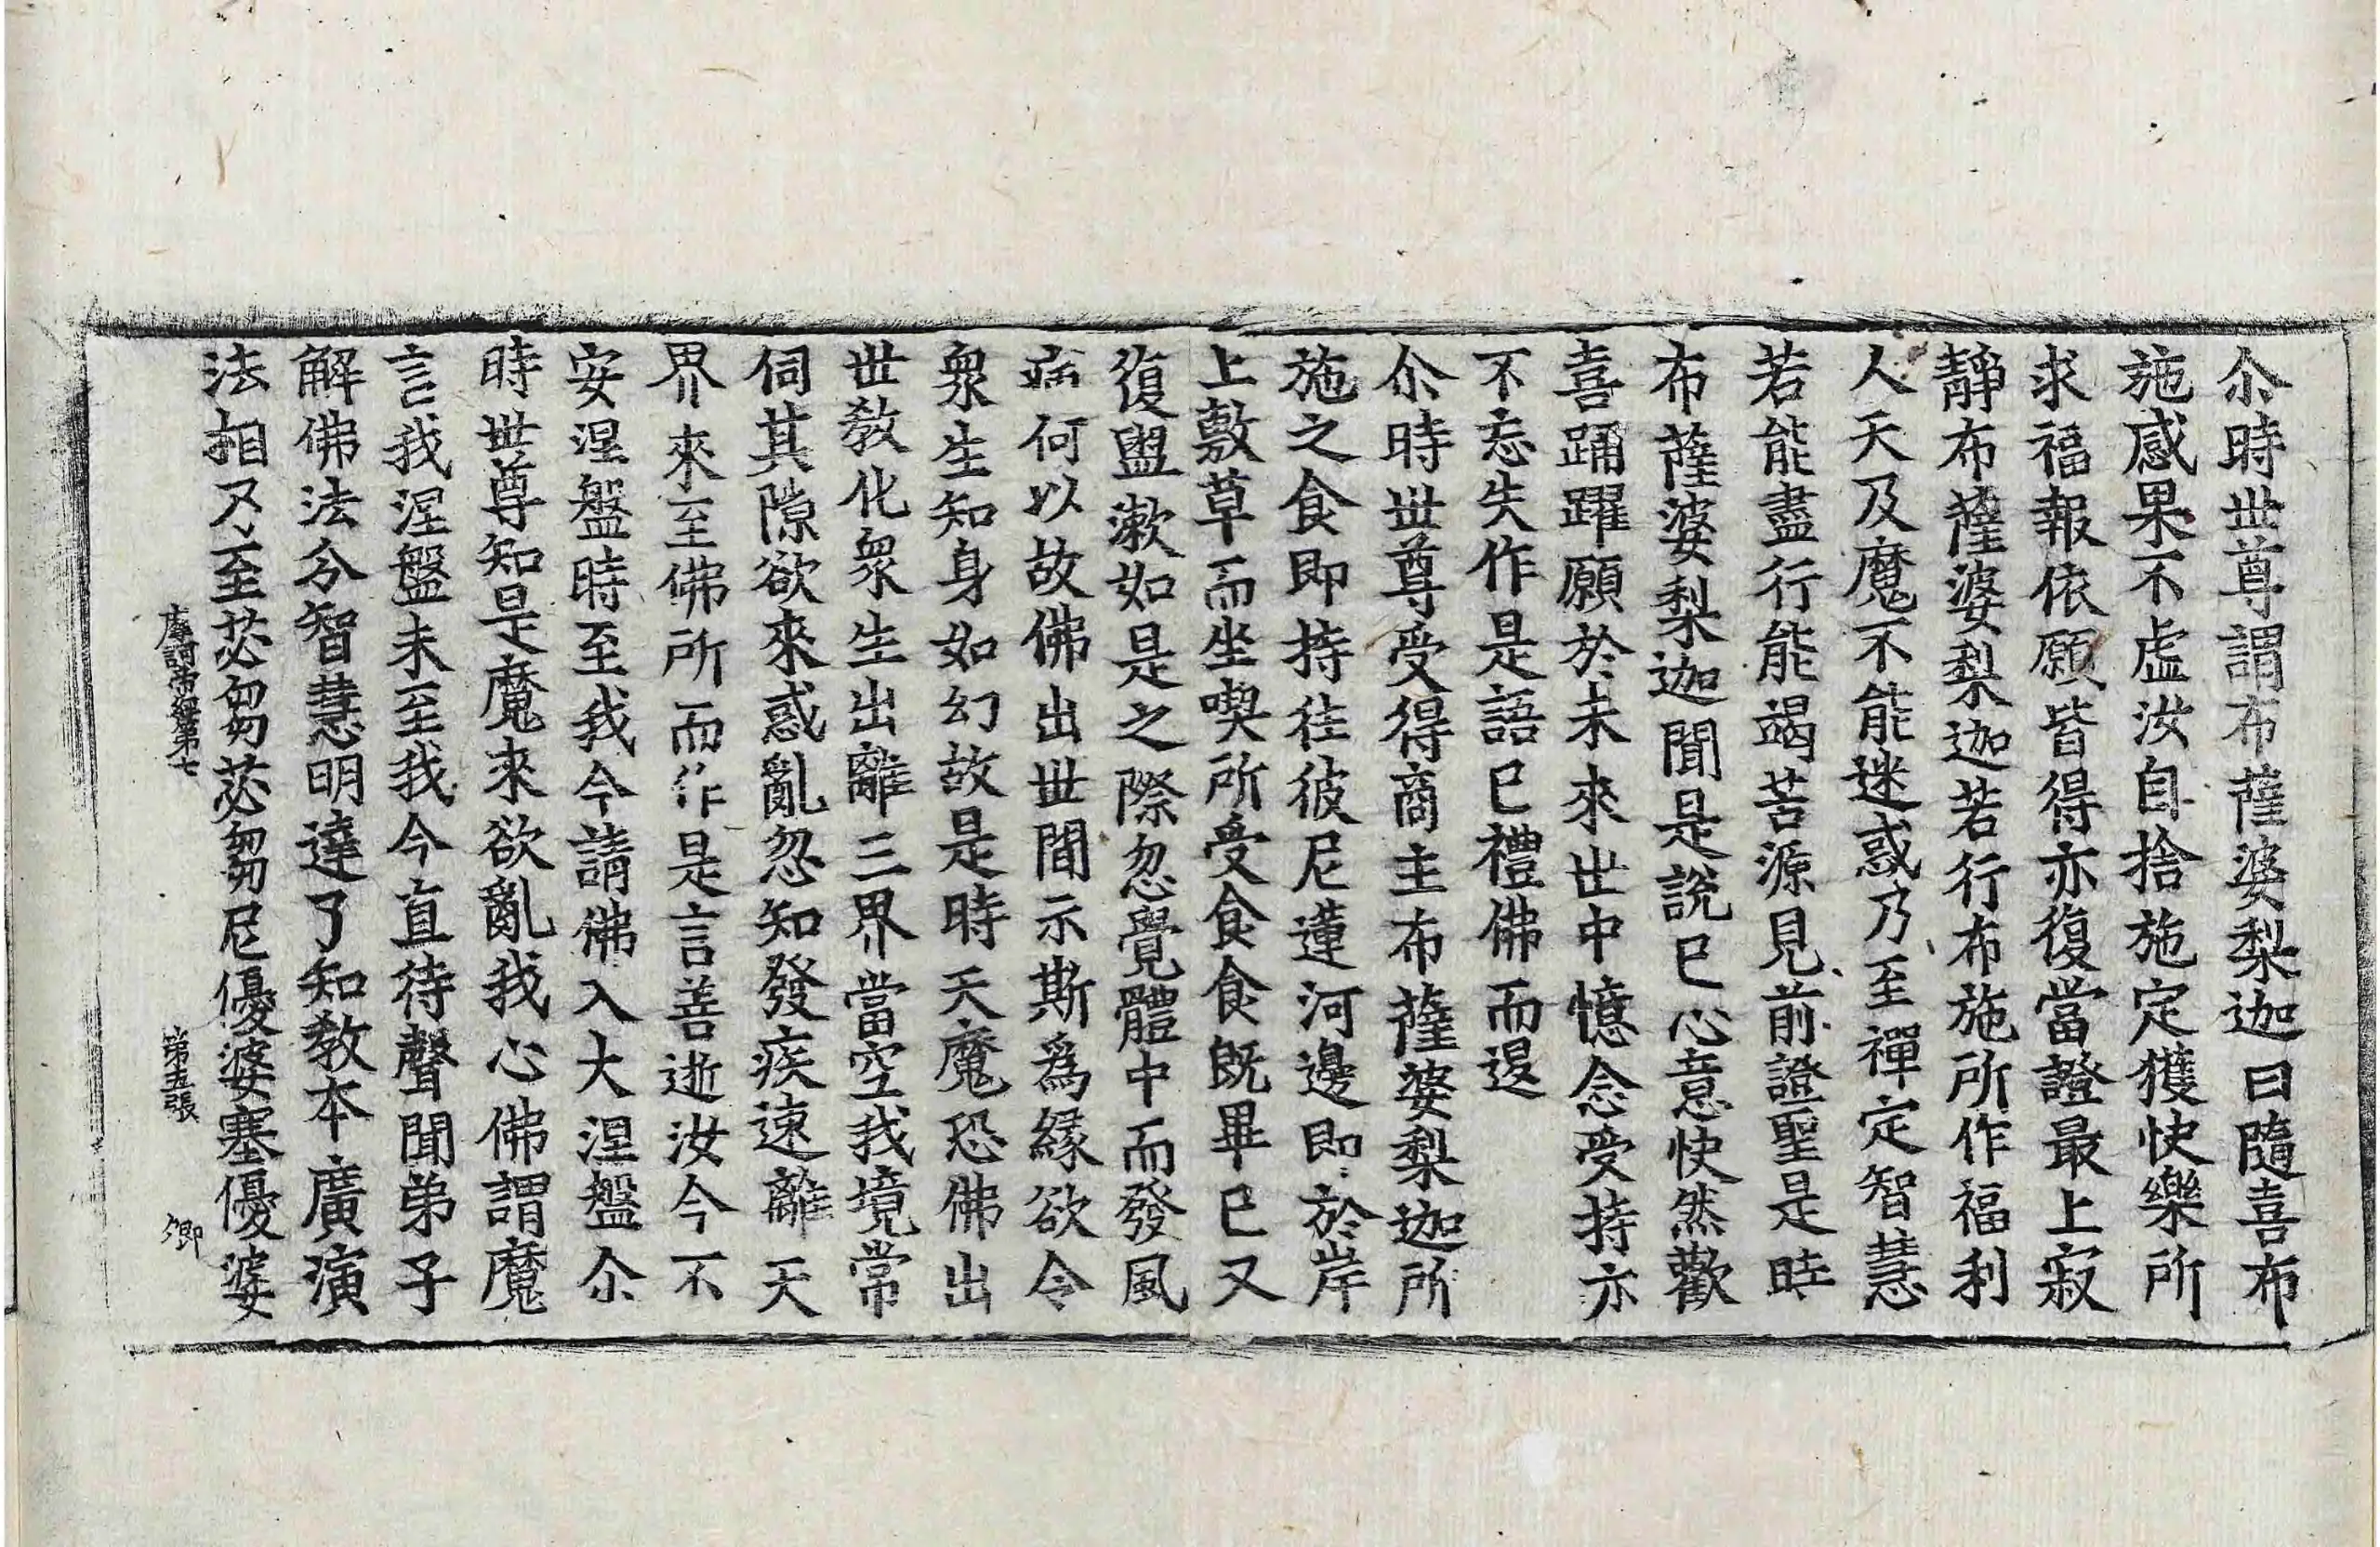 尒時世尊謂布薩婆梨迦曰隨喜布
施感果不虛汝自捨施定獲快樂所
求福報依願皆得亦復當證最上寂
靜布薩婆梨迦若行布施所作福利
人天及魔不能迷惑乃至禪定智慧
若能盡行能竭苦源見前證聖是時
布薩婆梨迦聞是說已心意快然歡
喜踊躍願於未來世中憶念受持亦
不忘失作是語已禮佛而退
尒時世尊受得商主布薩婆梨迦所
施之食即持往彼尼蓮河邊即於岸
上敷草而坐喫所受食食既畢已又
復盥漱如是之際忽覺體中而發風
病何以故佛出世間示斯爲緣欲令
衆生知身如幻故是時天魔恐佛出
世教化衆生出離三界當空我境常
伺其隙欲來惑亂忽知發疾速離天
界來至佛所而作是言善逝汝今不
安涅盤時至我今請佛入大涅盤尒
時世尊知是魔來欲亂我心佛謂魔
言我涅盤未至我今直待聲聞弟子
解佛法分智慧明達了知教本廣演
法相又至苾芻苾芻尼優婆塞優婆
摩訶帝經第七 第五張 卿